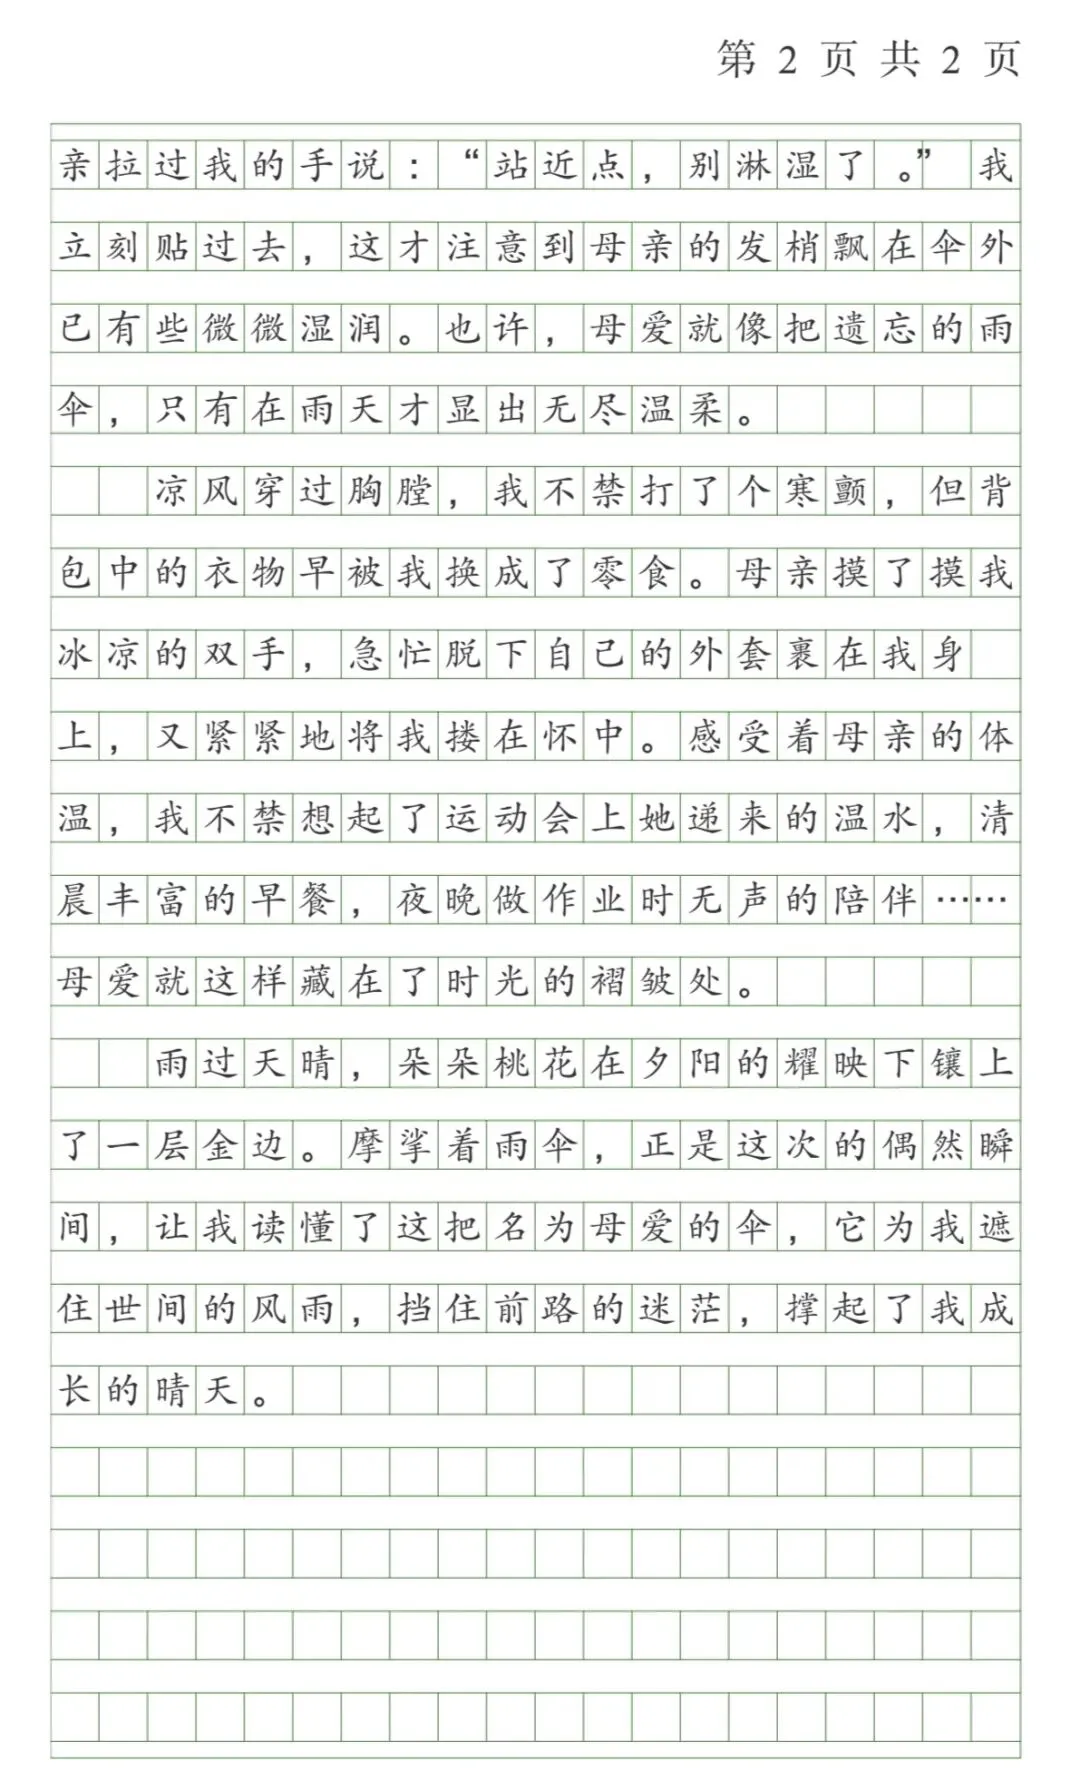 第 2 页 共 2 页
亲拉过我的手说：“站近点，别淋湿了。”我
立刻贴过去，这才注意到母亲的发梢飘在伞外
已有些微微湿润。也许，母爱就像把遗忘的雨
伞，只有在雨天才显出无尽温柔。
凉风穿过胸膛，我不禁打了个寒颤，但背
包中的衣物早被我换成了零食。母亲摸了摸我
冰凉的双手，急忙脱下自己的外套裹在我身
上，又紧紧地将我搂在怀中。感受着母亲的体
温，我不禁想起了运动会上她递来的温水，清
晨丰富的早餐，夜晚做作业时无声的陪伴……
母爱就这样藏在了时光的褶皱处。
雨过天晴，朵朵桃花在夕阳的耀映下镶上
了一层金边。摩挲着雨伞，正是这次的偶然瞬
间，让我读懂了这把名为母爱的伞，它为我遮
住世间的风雨，挡住前路的迷茫，撑起了我成
长的晴天。